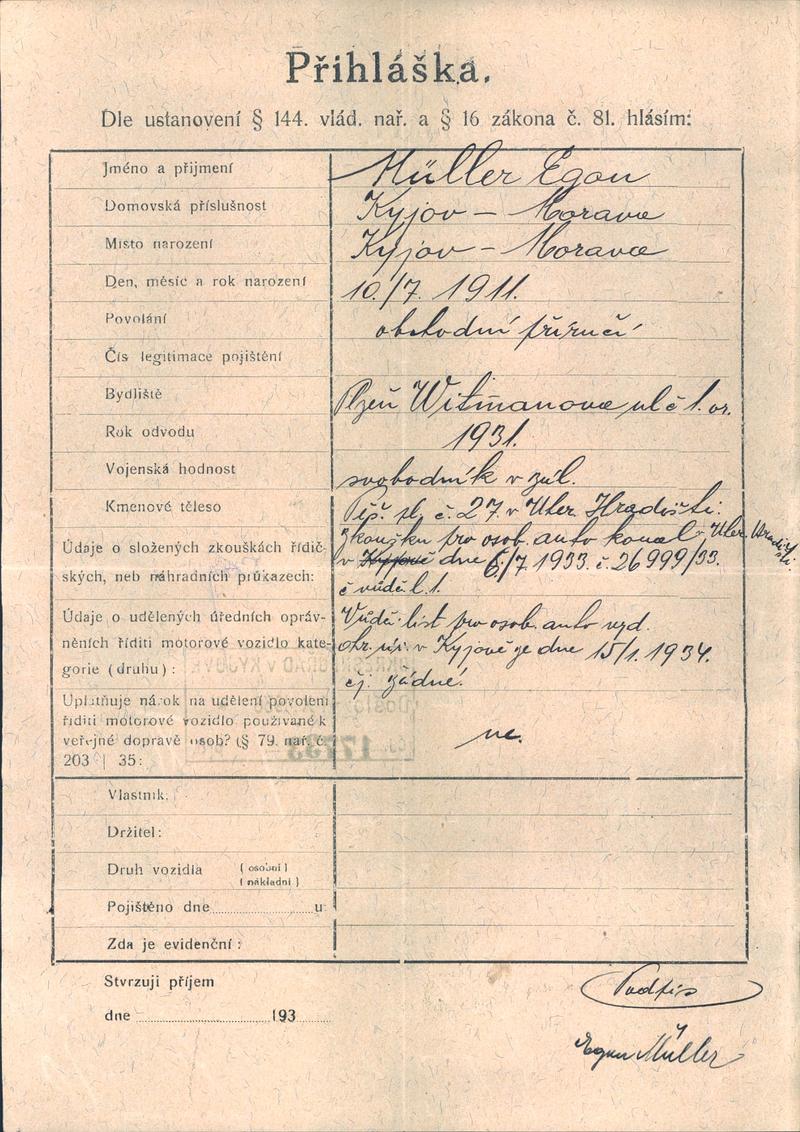 Přihláška.
Dle ustanovení § 144. vlád. nař. a § 16 zákona č. 81. hlásím:
Jméno a přijmení Müller Egon
Domovská příslušnost Kyjov – Morava
Místo narození Kyjov – Morava
Den, měsíc a rok narození 10./7. 1911.
Povolání obchodní příručí
Čís legitimace pojištění
Bydliště Plzeň Witmanova ul č 1. or.
Rok odvodu 1931.
Vojenská hodnost svobodník v zál.
Kmenové těleso Pěš. pl. č. 27. v Uher. Hradišti.
Údaje o složených zkouškách řidič- zkoušku pro osob. auto konal v Uher. Hradišti
ských, neb náhradních průkazech: v Kyjově dne 6./7 1933. č. 26999/33.
č vůdč. l. 1.
Údaje o udělených úředních opráv- Vůdč. list pro osob. auto vyd.
něních říditi motorové vozidlo kate- okr. úř. v Kyjově ze dne 15/1. 1934.
gorie (druhu): čj. žádné.
Uplatňuje nárok na udělení povolení
říditi motorové vozidlo používané k
veřejné dopravě osob? (§ 79. nař. č. ne.
203 | 35:
Vlastník:
Držitel:
Druh vozidla (osobní)
(nákladní)
Pojištěno dne u
Zda je evidenční:
Stvrzuji příjem
Podpis
dne 193
Egon Müller